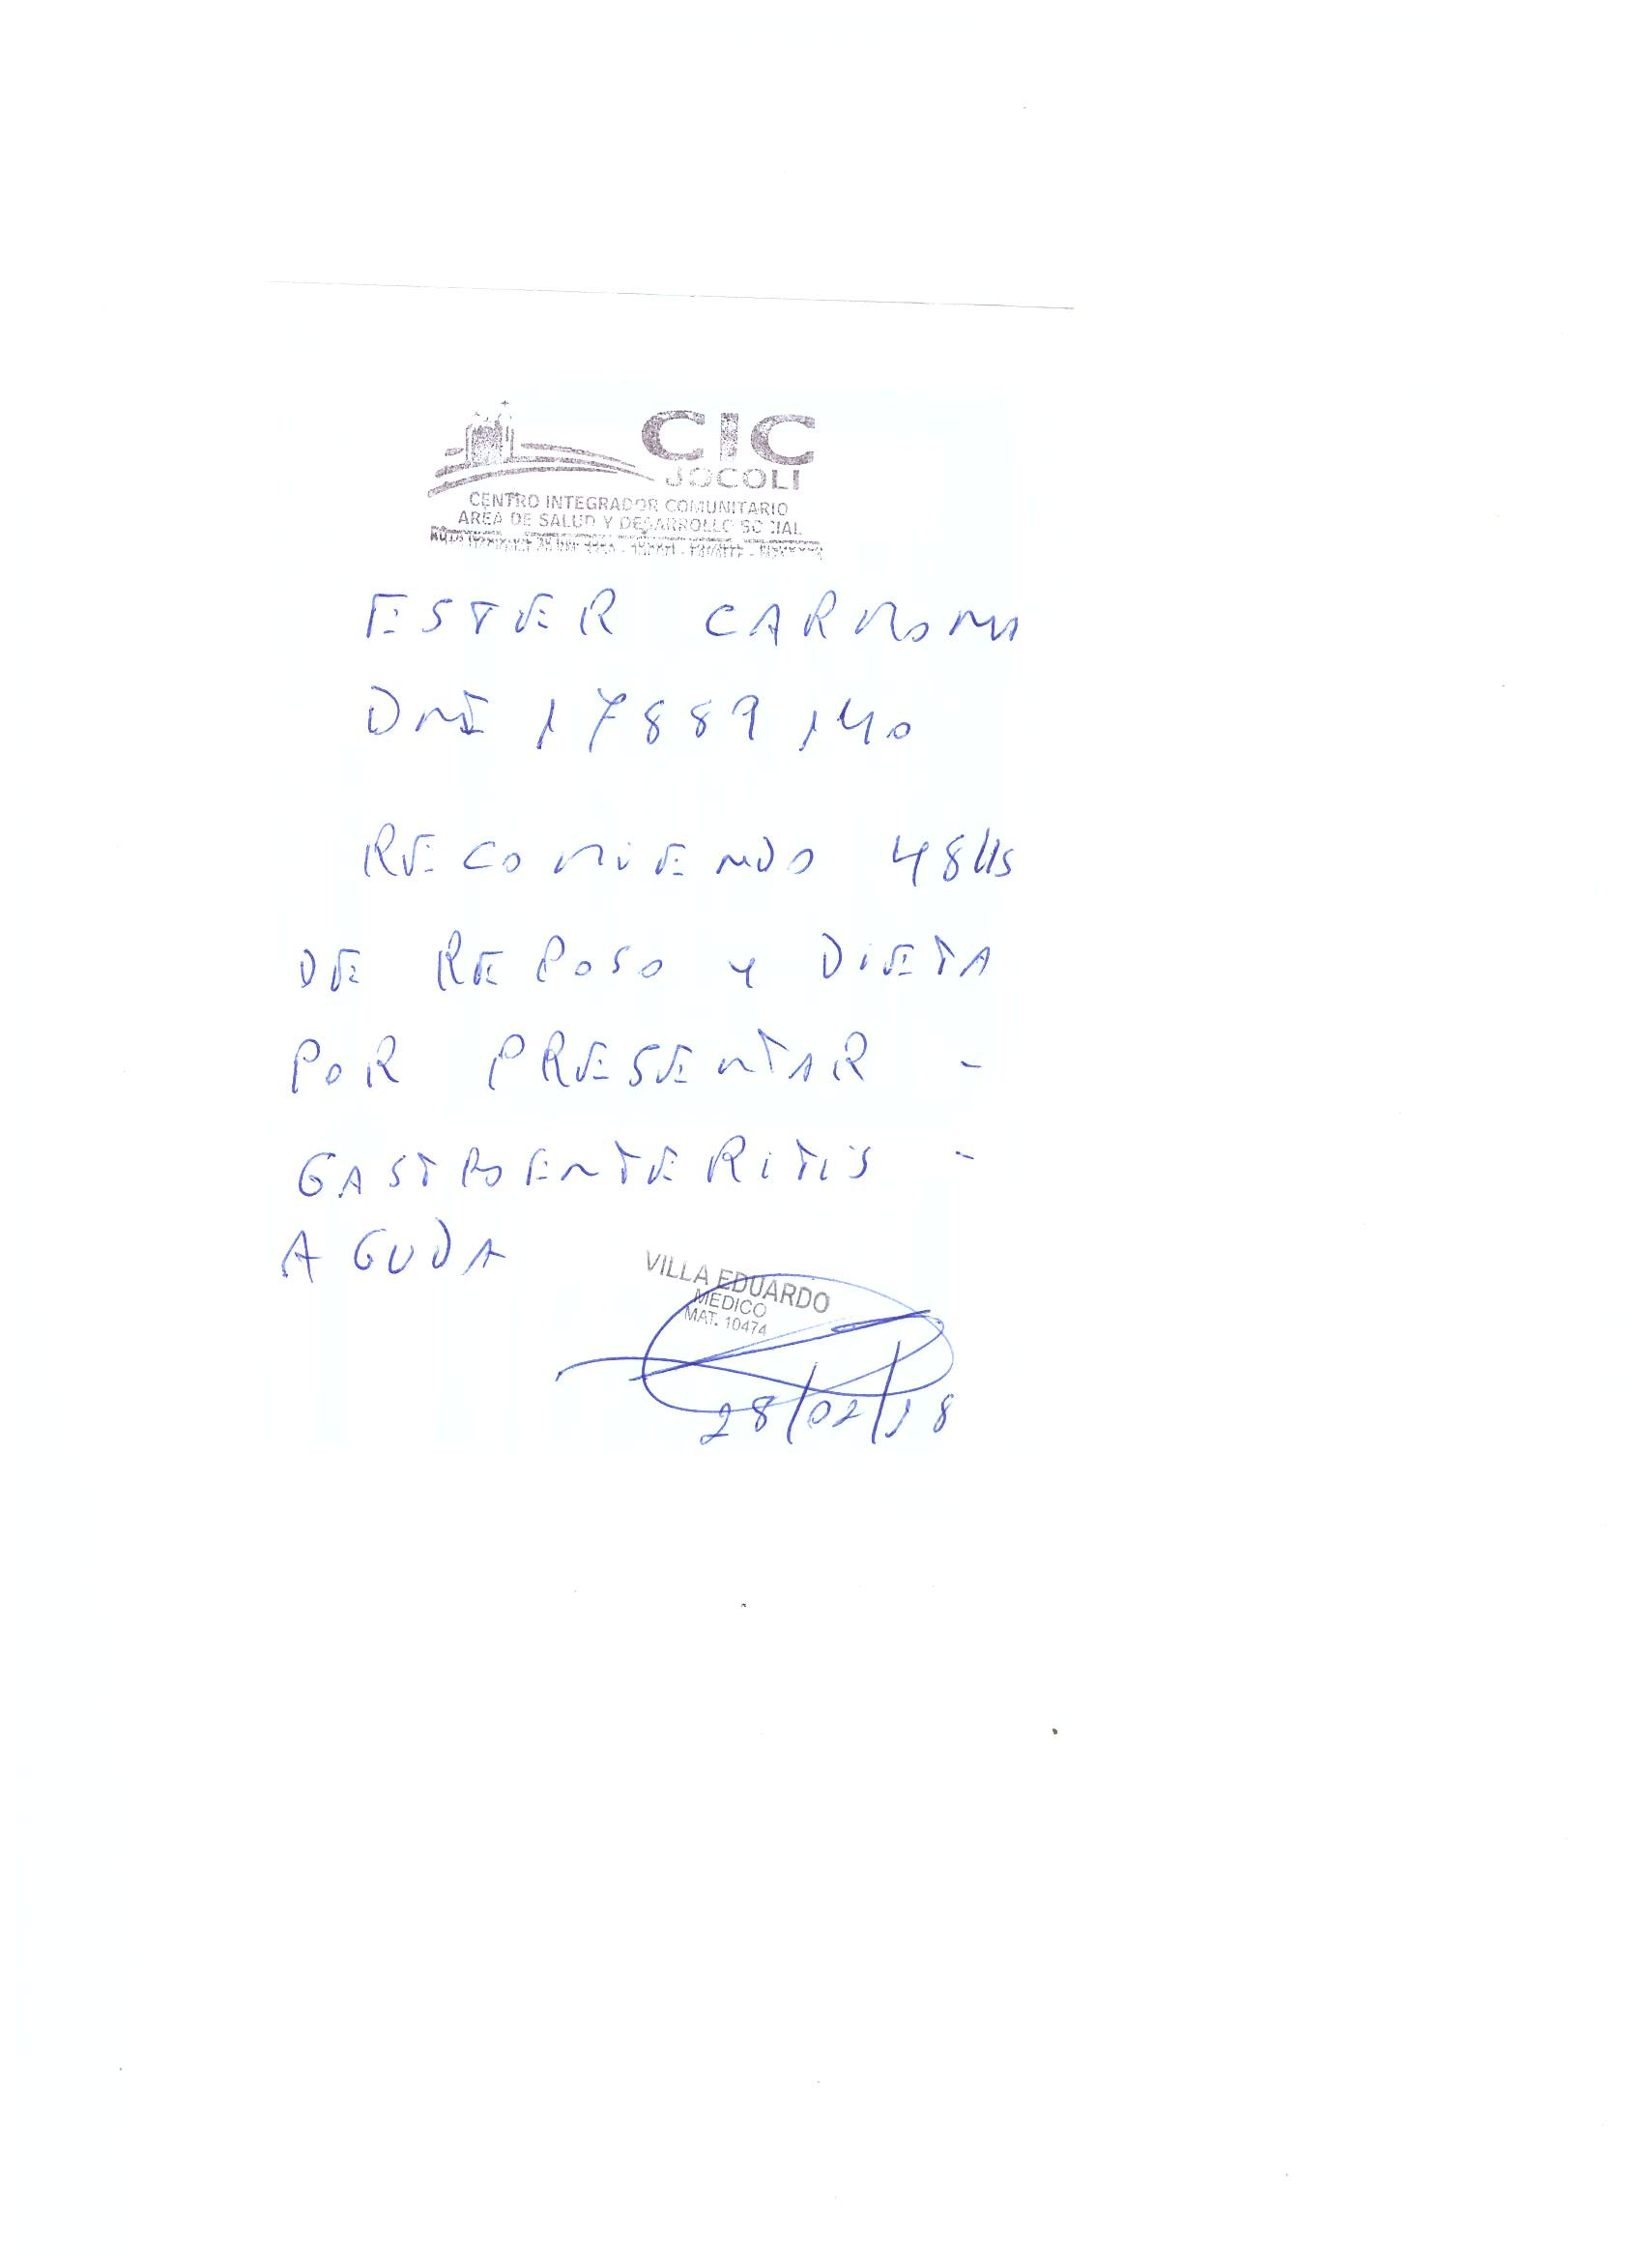 CIC
JOCOLI
CENTRO INTEGRADOR COMUNITARIO
AREA DE SALUD Y DESARROLLO SOCIAL
ESTER CARMONA
DNI 17889140
RECOMIENDO 48Hs
DE REPOSO Y DIETA
POR PRESENTAR -
GASTROENTERITIS -
AGUDA
VILLA EDUARDO
MEDICO
MAT. 10474
28/02/18